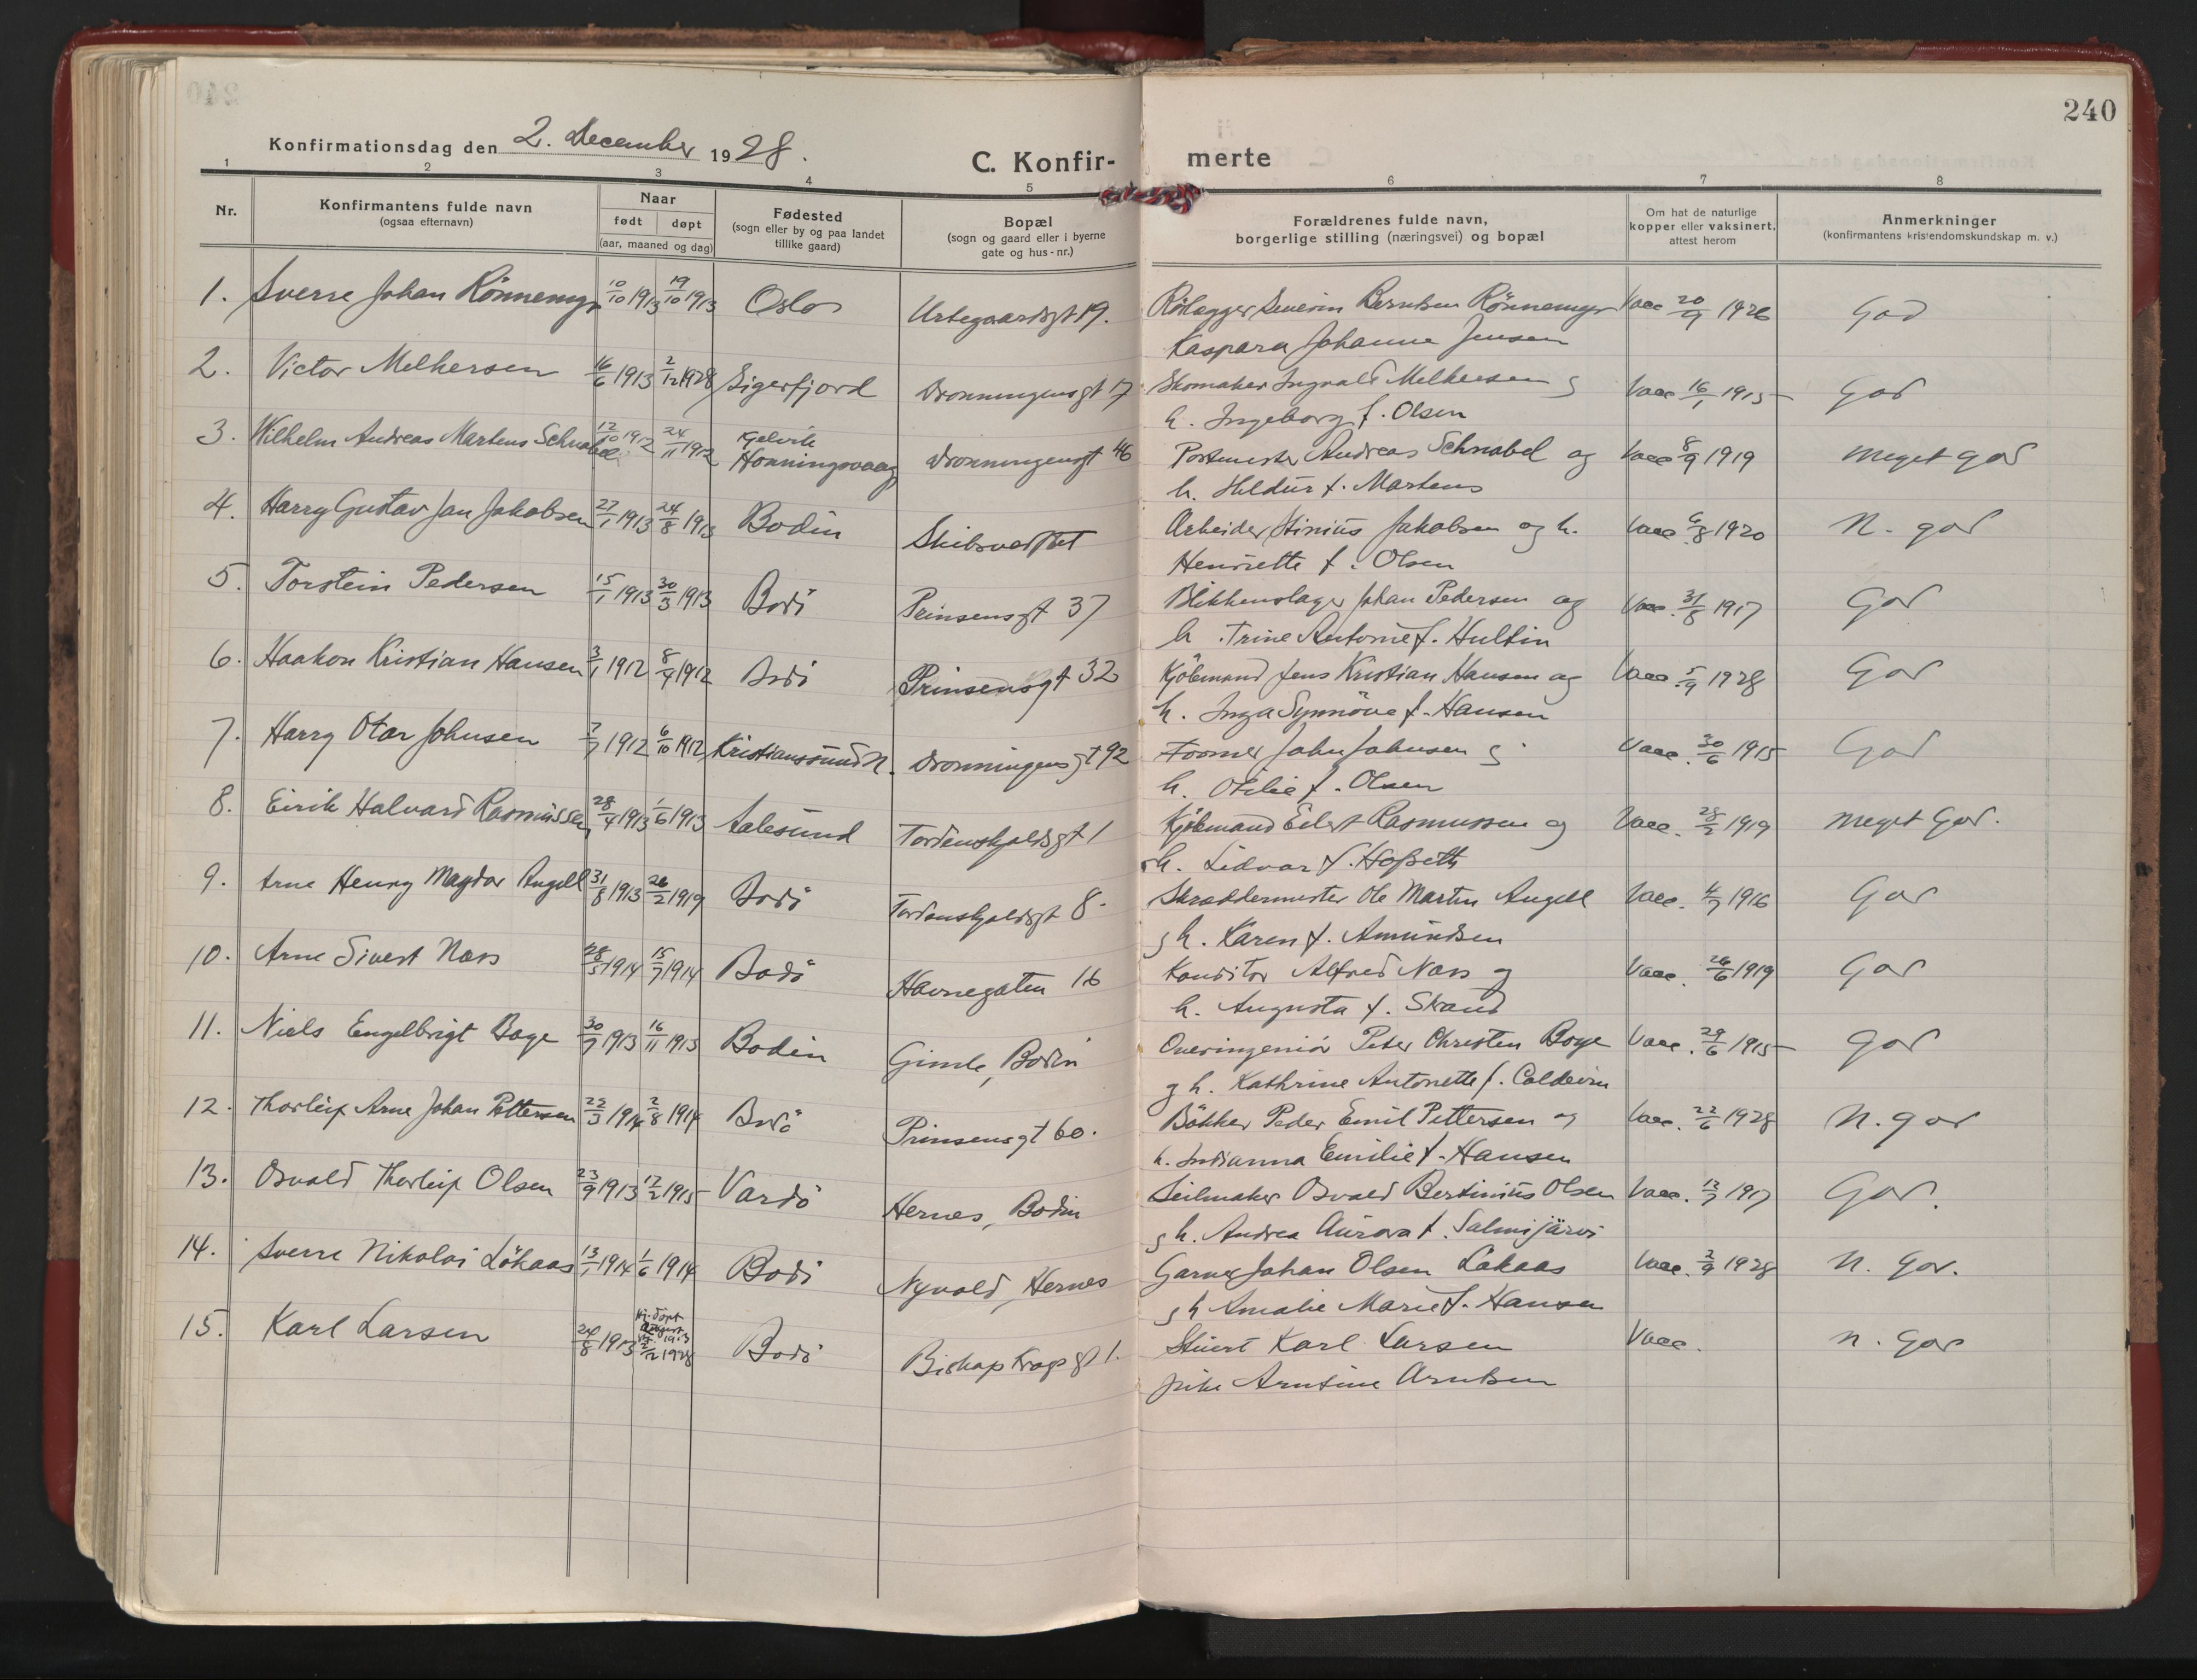 240
Konfirmationsdag den 2. December 1928.
C. Konfirmerte
1 2 3 4 5 6 7 8
Nr.
Konfirmantens fulde navn
(ogsaa efternavn)
Naar
født døpt
(aar, maaned og dag)
Fødested
(sogn eller by og paa landet
tillike gaard)
Bopæl
(sogn og gaard eller i byerne
gate og hus-nr.)
Forældrenes fulde navn,
borgerlige stilling (næringsvei) og bopæl
Om hat de naturlige
kopper eller vaksinert,
attest herom
Anmerkninger
(konfirmantens kristendomskundskap m. v.)
1. Sverre Johan Rönnemyr 10/10 1913 19/10 1913 Oslo Urtegaardsgt 19. Rörlægger Severin Berntsen Rönnemyr Vacc 20/9 1926 God
Kaspara Johanne Jensen
2. Victor Melkersen 16/6 1913 2/12 1928 Sigerfjord Dronningensgt 17 Skomaker Ingvald Melkersen g Vacc 16/1 1915 God
h. Ingeborg f. Olsen
3. Wilhelm Andreas Martens Schnabel 12/10 1912 24/11 1912 Kjelvik Honningsvaag Dronningensgt 46 Postmester Andreas Schnabel og Vacc 8/9 1919 Meget god
h. Heldur f. Martens
4. Harry Gustav Jan Jakobsen 27/1 1913 24/8 1913 Bodin Skibsverftet Arbeider Stinius Jakobsen og h. Vacc 6/8 1920 N. god
Henriette f. Olsen
5. Torstein Pedersen 15/1 1913 30/3 1913 Bodö Prinsensgt 37 Blikkenslager Johan Pedersen og Vacc. 31/8 1917 God
h. Trine Antonie f. Hultin
6. Haakon Kristian Hansen 3/1 1912 8/4 1912 Bodö Prinsensgt 32 Kjöbmand Jens Kristian Hansen og Vacc. 5/9 1928 God
h. Inga Synnöve f. Hansen
7. Harry Otar Johnsen 7/7 1912 6/10 1912 Kristianssund N. Dronningensgt 92 Former John Johnsen g Vacc. 30/6 1915 God
h. Otilie f. Olsen
8. Eirik Halvard Rasmussen 28/4 1913 1/6 1913 Aalesund Tordenskjoldsgt 1 Kjöbmand Eilert Rasmussen og Vacc. 28/2 1919 Meget God.
h. Lidvar f. Hofseth
9. Arne Henry Magdor Angell 31/8 1913 26/2 1919 Bodö Tordenskjoldsgt 8. Skræddermester Ole Martin Angell Vacc. 4/7 1916 God
g h. Karen f. Amundsen
10. Arne Sivert Næss 28/5 1914 15/7 1914 Bodö Havnegaten 16 Konditor Alfred Næss og Vacc. 26/6 1919 God
h. Augusta f. Strand
11. Niels Engelbrigt Boye 30/7 1913 16/11 1913 Bodin Gimle, Bodin Overingeniör Peter Christen Boye Vacc. 29/6 1915 god
g h. Kathrine Antonette f. Coldevin
12. Thorleif Arne Johan Pettersen 22/3 1914 2/8 1914 Bodö Prinsensgt 60. Bökker Peder Emil Pettersen og Vacc. 22/6 1928 N. god
h. Indianna Emilie f. Hansen
13. Osvald Thorleif Olsen 23/9 1913 12/2 1915 Vardö Hernes, Bodin Seilmaker Osvald Bertinius Olsen Vacc. 13/7 1917 God.
g h. Andrea Aurora f. Salmijärvi
14. Sverre Nikolai Lökaas 13/1 1914 1/6 1914 Bodö Nyvold, Hernes Garver Johan Olsen Lökaas Vacc. 2/9 1928 N. God.
g h Amalie Marie f. Hansen
15. Karl Larsen 24/8 1913 hj. döpt August 1913 2/12 1928 Bodö Biskop Krogs gt 1. Stuert Karl Larsen Vacc. N. God
Arntine Arntsen